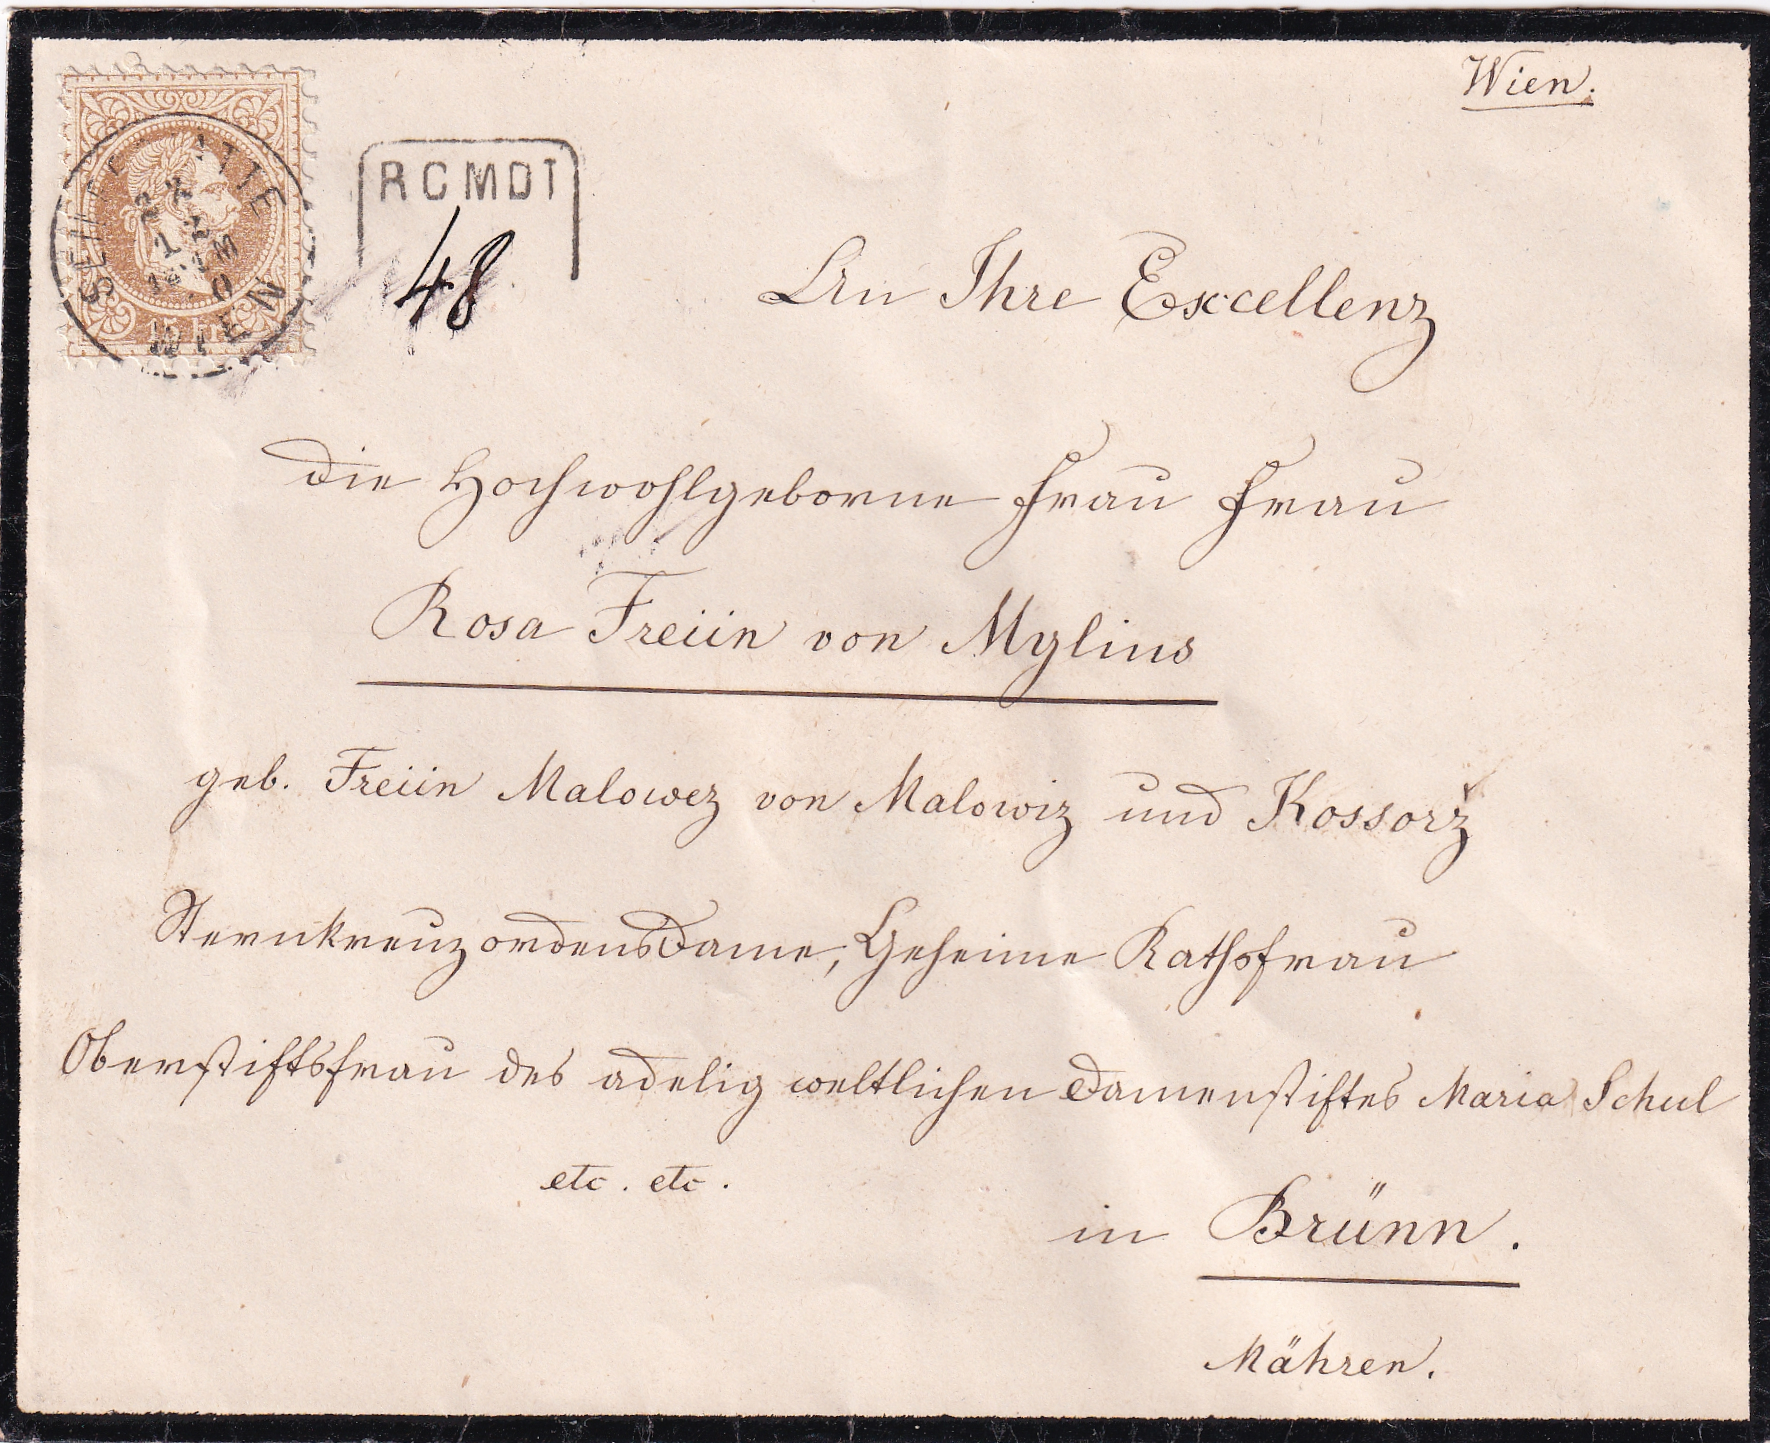 Wien.
RCMDT
48
WIEN
15 Kr
An Ihre Excellenz
die Hochwohlgeborne Frau Frau
Rosa Freiin von Mylius
geb. Freiin Malowez von Malowiz und Kossorž
Sternkreuzordensdame, Geheime Rathsfrau
Oberstiftsfrau des adelig weltlichen Damenstiftes Maria Schul
etc. etc.
in Brünn.
Mähren.